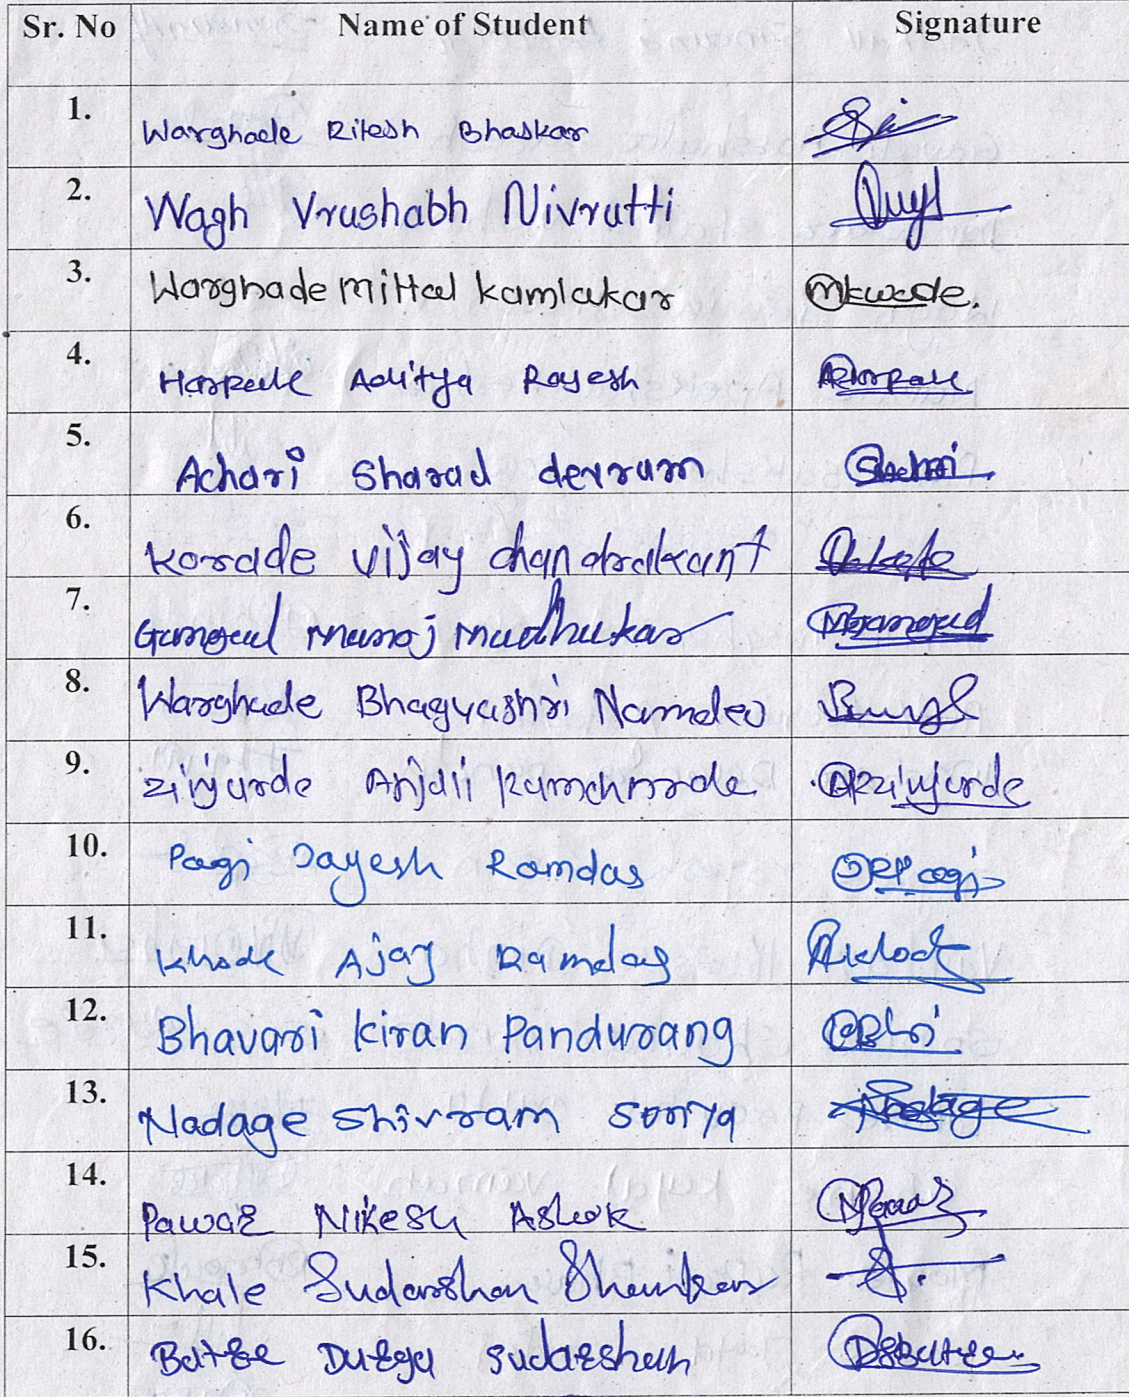 Sr. No Name of Student Signature
1. Warghade Ritesh Bhaskar
2. Wagh Vrushabh Nivrutti
3. Warghade Mittal kamlakar Mkwade.
4. Harpale Aditya Rajesh
5. Achari Sharad devram
6. Korade Vijay chandrakant
7. Gangad Manoj Madhukar MGangad
8. Warghade Bhagyashri Namdev
9. Zinjurde Anjali Ramchndra ARZinjurde
10. Pagi Jayesh Ramdas JRPagi
11. Khode Ajay Ramdas
12. Bhavari Kiran Pandurang
13. Nadage Shivram Somya Nadage
14. Pawar Nikesh Ashok
15. Khale Sudarshan Shankar
16. Batre Durga sudarshan